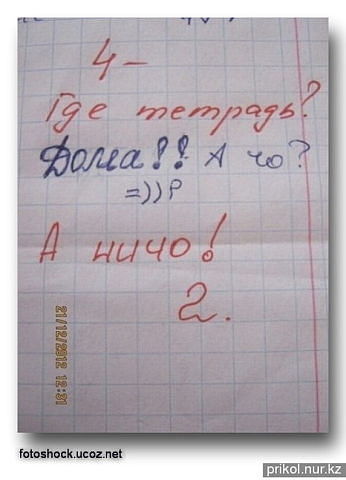 4-
Где тетрадь?
Дома!! А чо?
=))P
А ничо!
2.
21/12/2012 12:31
fotoshock.ucoz.net
prikol.nur.kz